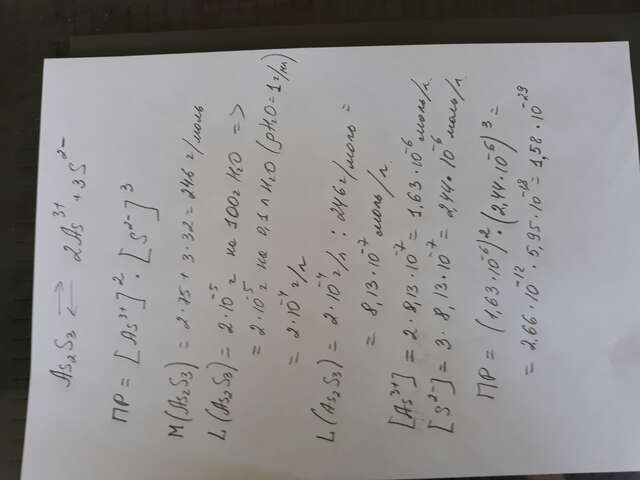 As₂S₃ ⇄ 2As³⁺ + 3S²⁻
ПР = [As³⁺]² · [S²⁻]³
M(As₂S₃) = 2·75 + 3·32 = 246 г/моль
L(As₂S₃) = 2·10⁻⁵ г на 100г H₂O =>
= 2·10⁻⁵ г на 0,1 л H₂O (ρH₂O = 1 г/мл)
= 2·10⁻⁴ г/л
L(As₂S₃) = 2·10⁻⁴ г/л : 246 г/моль =
= 8,13·10⁻⁷ моль/л.
[As³⁺] = 2·8,13·10⁻⁷ = 1,63·10⁻⁶ моль/л.
[S²⁻] = 3·8,13·10⁻⁷ = 2,44·10⁻⁶ моль/л
ПР = (1,63·10⁻⁶)² · (2,44·10⁻⁶)³ =
= 2,66·10⁻¹² · 5,95·10⁻¹⁸ = 1,58·10⁻²⁹